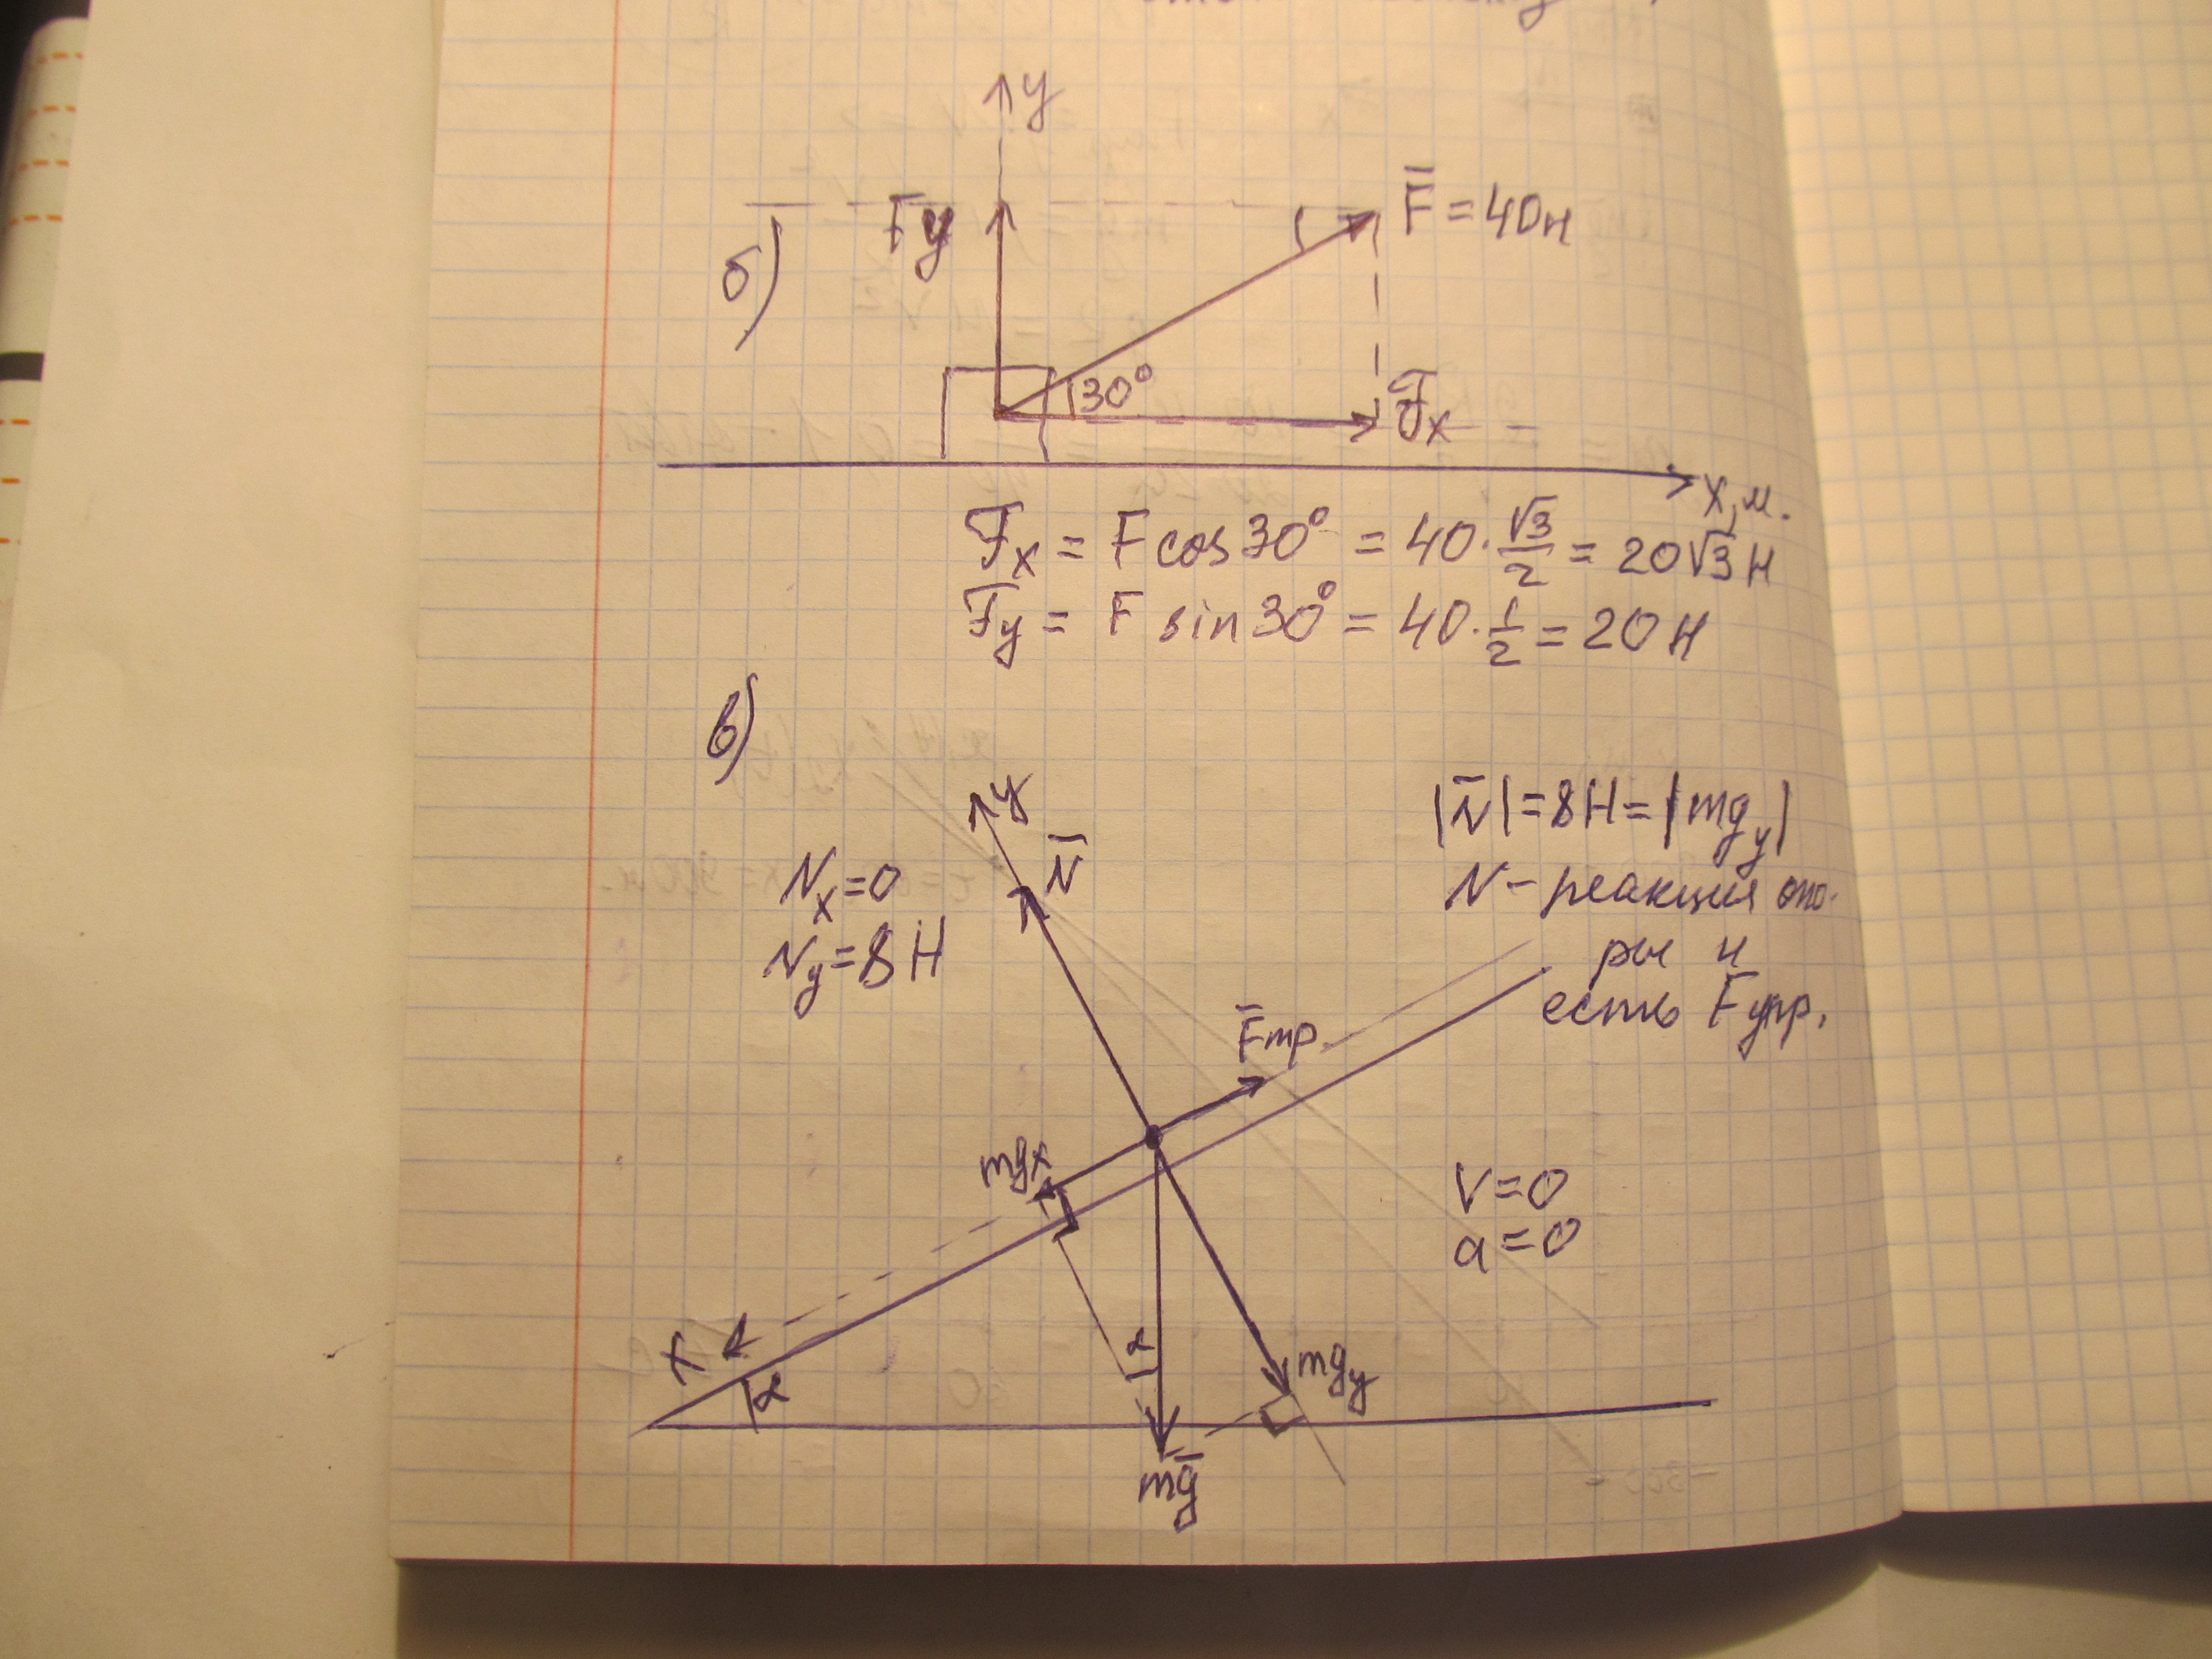 y
F̅ = 40н
Fy
б)
30°
Fx
x, м.
Fx = F cos 30° = 40 · √3/2 = 20√3 Н
Fy = F sin 30° = 40 · 1/2 = 20 Н
в)
y
N̅
|N̅| = 8Н = |mgy|
Nx = 0
N – реакция опо-
Ny = 8 Н
ры и
есть Fупр.
F̅тр.
mgx
V = 0
a = 0
x
α
α
mgy
mg̅